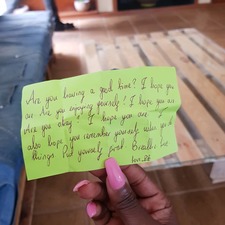 Are you having a good time? I hope you
are. Are you enjoying yourself? I hope you are
Are you okay? I hope you are. I
also hope you remember yourself when you do
things. Put yourself first. Breathe. Live